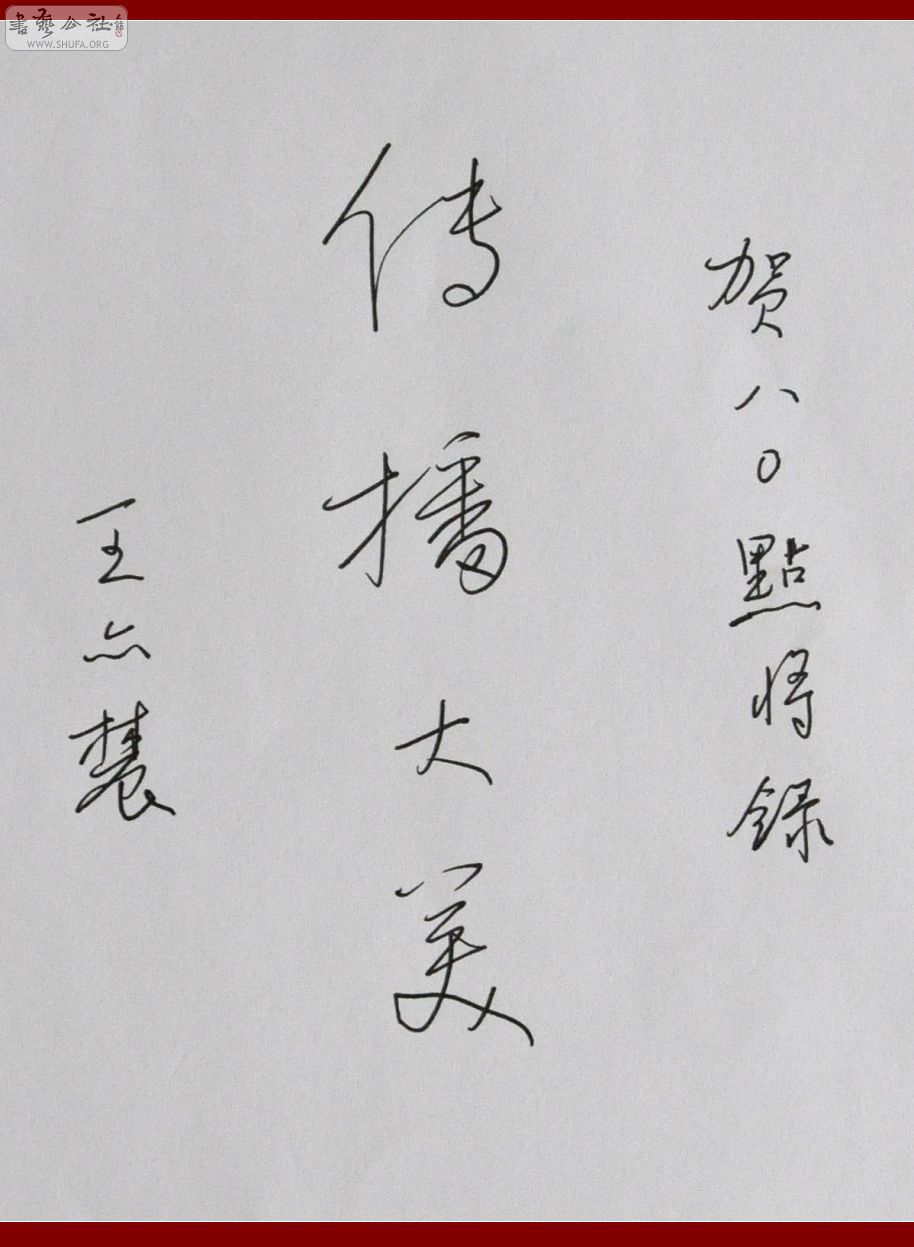 書藝公社
WWW.SHUFA.ORG
贺八〇點将録
传播大美
王亦